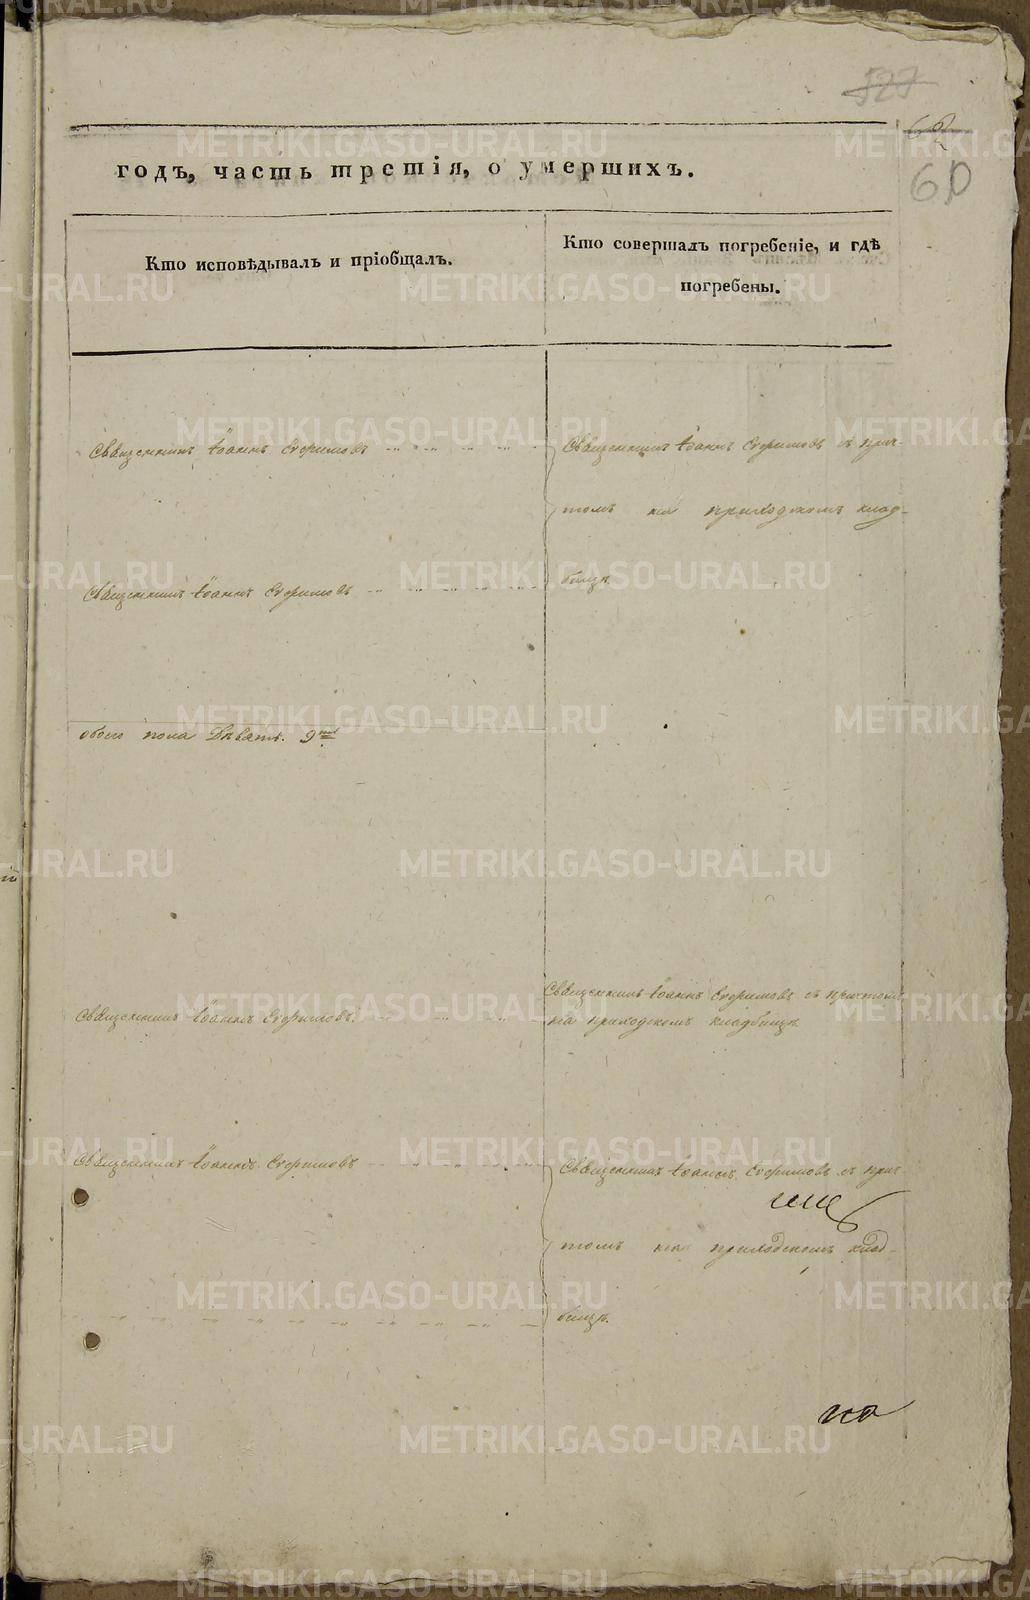 527
60
годъ, часть третія, о умершихъ.
Кто исповѣдывалъ и пріобщалъ.
Кто совершалъ погребеніе, и гдѣ
погребены.
Священникъ Іоаннъ Ефимовъ
Священникъ Іоаннъ Ефимовъ съ прич-
томъ на приходскомъ клад-
Священникъ Іоаннъ Ефимовъ
бищѣ.
обоего пола Девять. 9
Священникъ Іоаннъ Ефимовъ съ причтомъ
Священникъ Іоаннъ Ефимовъ.
на приходскомъ кладбищѣ.
Священникъ Іоаннъ Ефимовъ
Священникъ Іоаннъ Ефимовъ съ прич
томъ на приходскомъ клад-
бищѣ.
на
METRIKI.GASO-URAL.RU